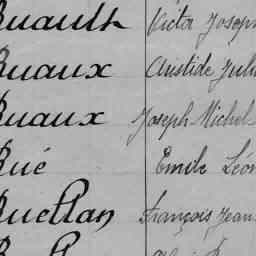 Ruault Victor Joseph
Ruaux Aristide Juli
Ruaux Joseph Michel
Rué Emile Léon
Ruellan François Jean